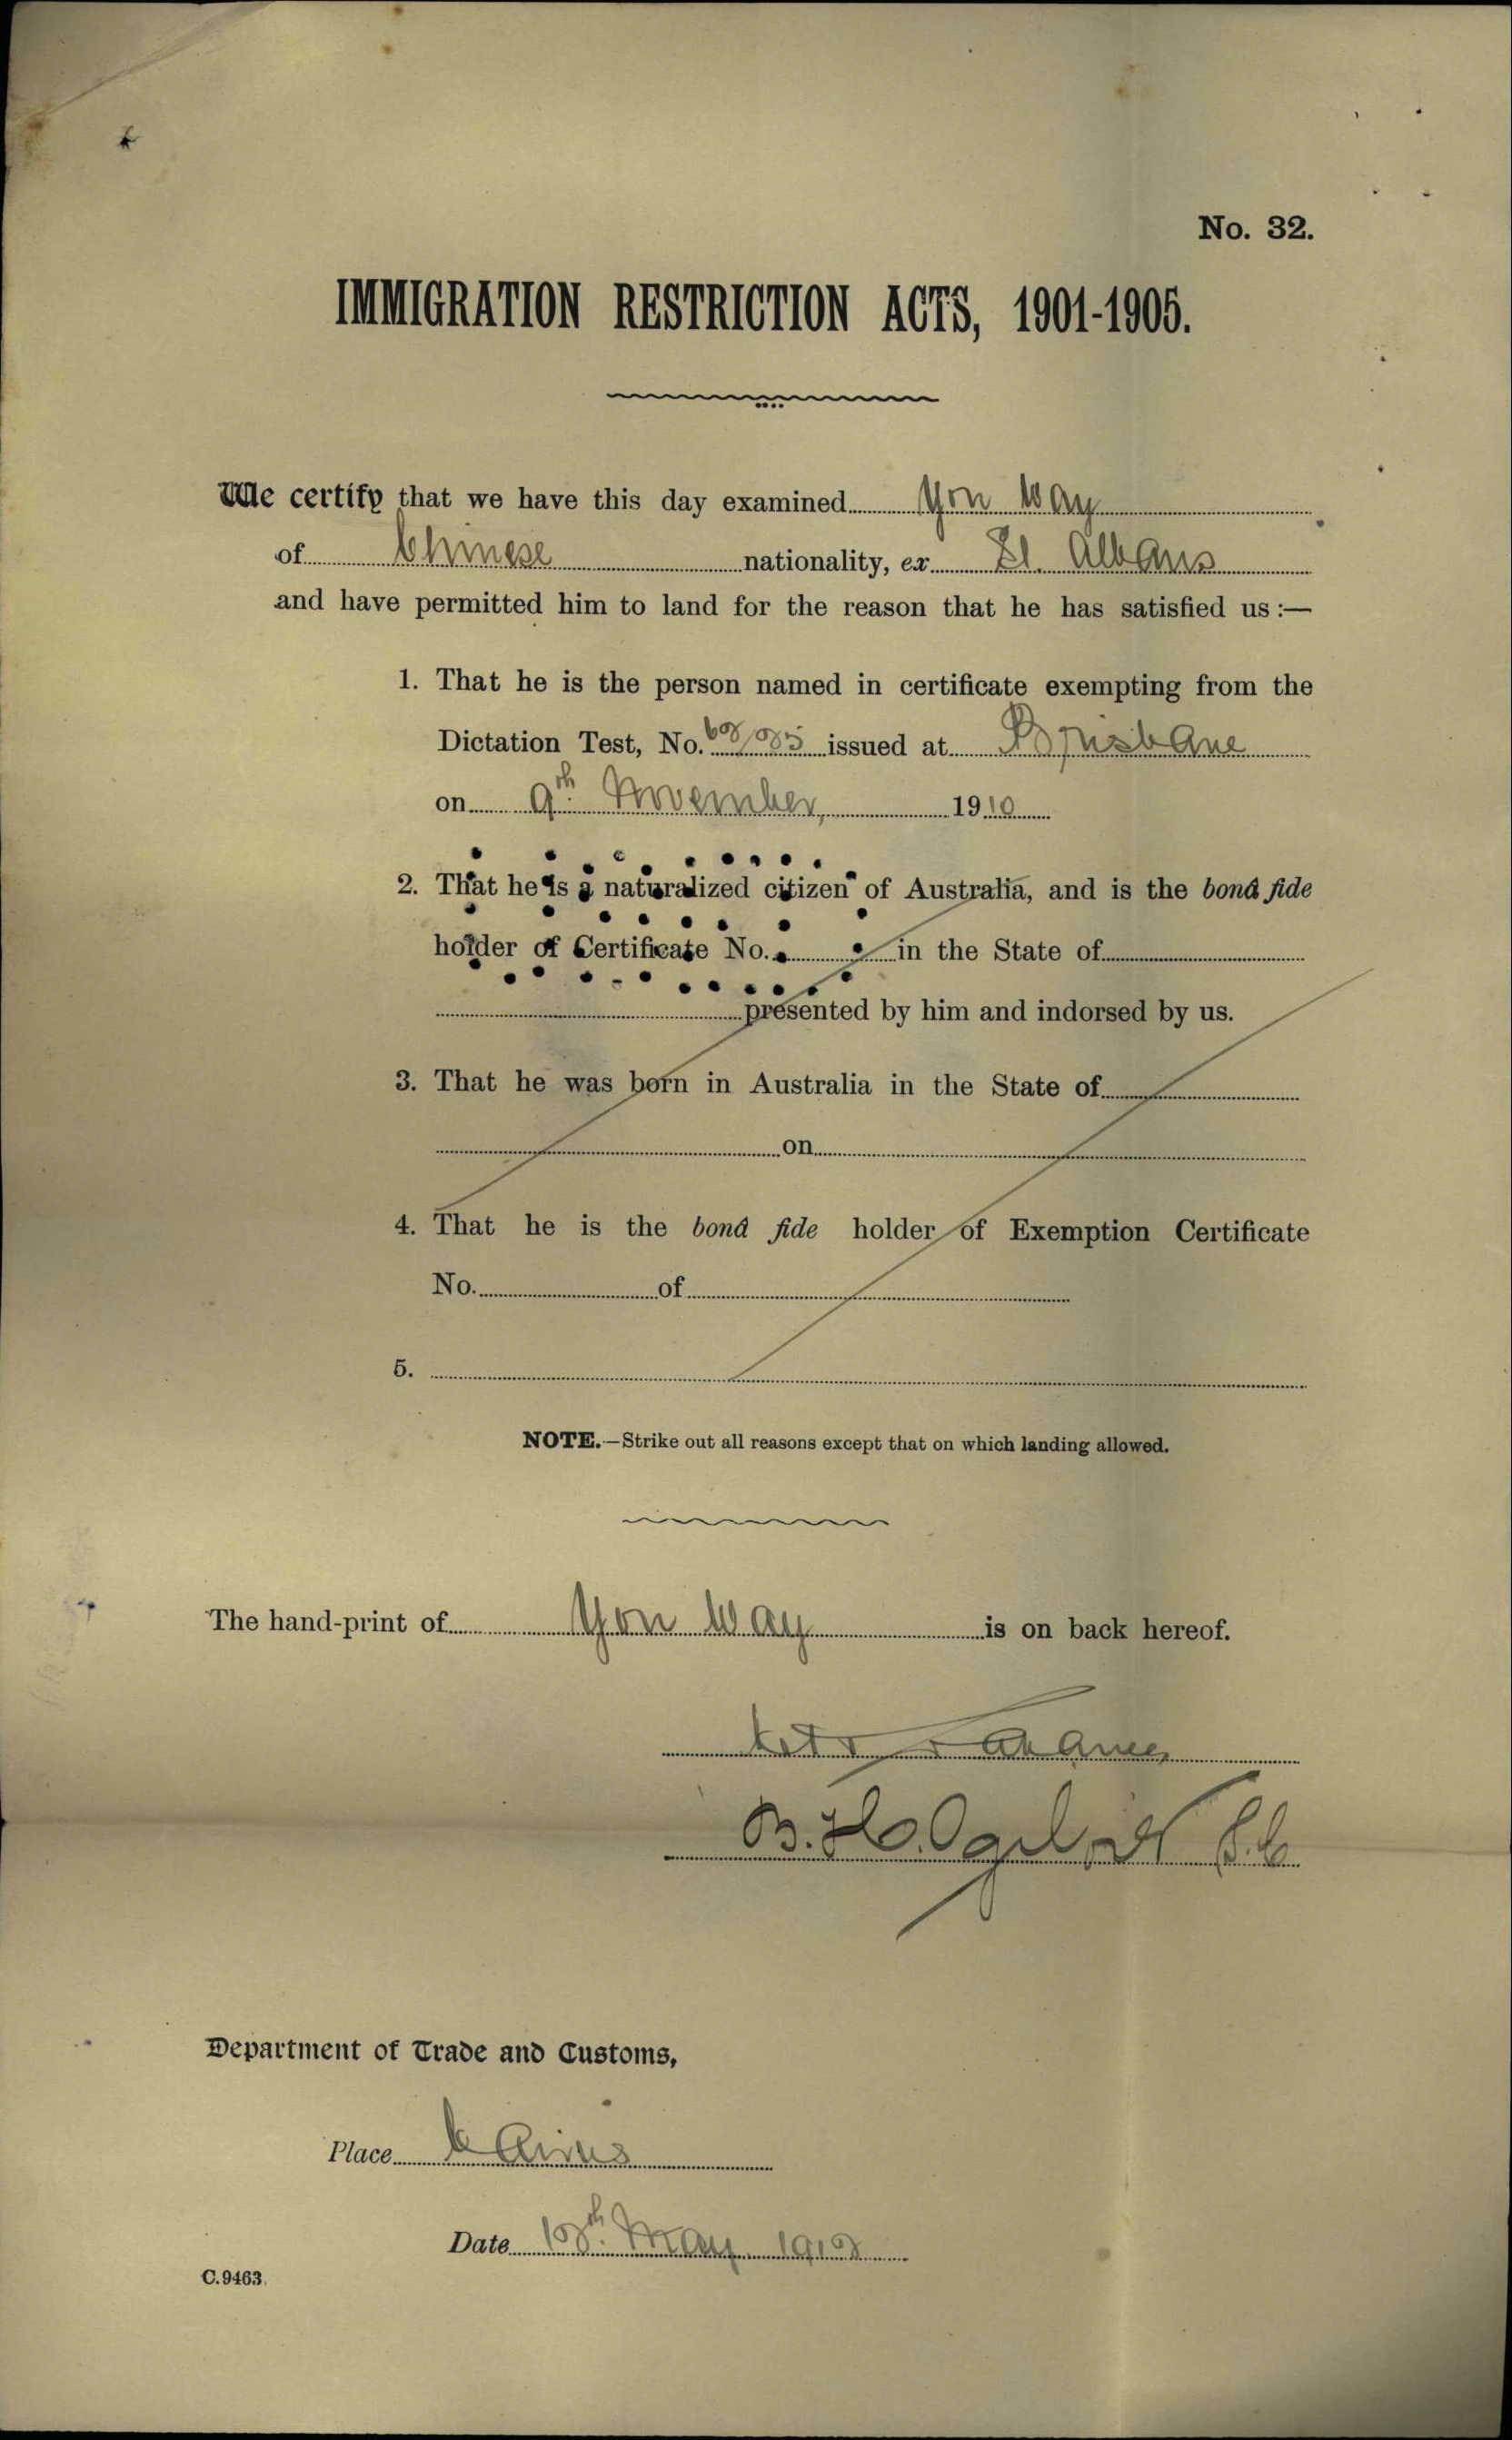 No. 32.
IMMIGRATION RESTRICTION ACTS, 1901-1905.
We certify that we have this day examined Yon Way
of Chinese nationality, ex St. Albans
and have permitted him to land for the reason that he has satisfied us :—
1. That he is the person named in certificate exempting from the
Dictation Test, No. issued at Brisbane
on 9th November, 1910
2. That he is a naturalized citizen of Australia, and is the bonâ fide
holder of Certificate No. in the State of
presented by him and indorsed by us.
3. That he was born in Australia in the State of
on
4. That he is the bonâ fide holder of Exemption Certificate
No. of
5.
NOTE.—Strike out all reasons except that on which landing allowed.
The hand-print of Yon Way is on back hereof.
B. H. Ogilvie S.C
Department of Trade and Customs,
Place Cairns
Date May 1912
C.9463.